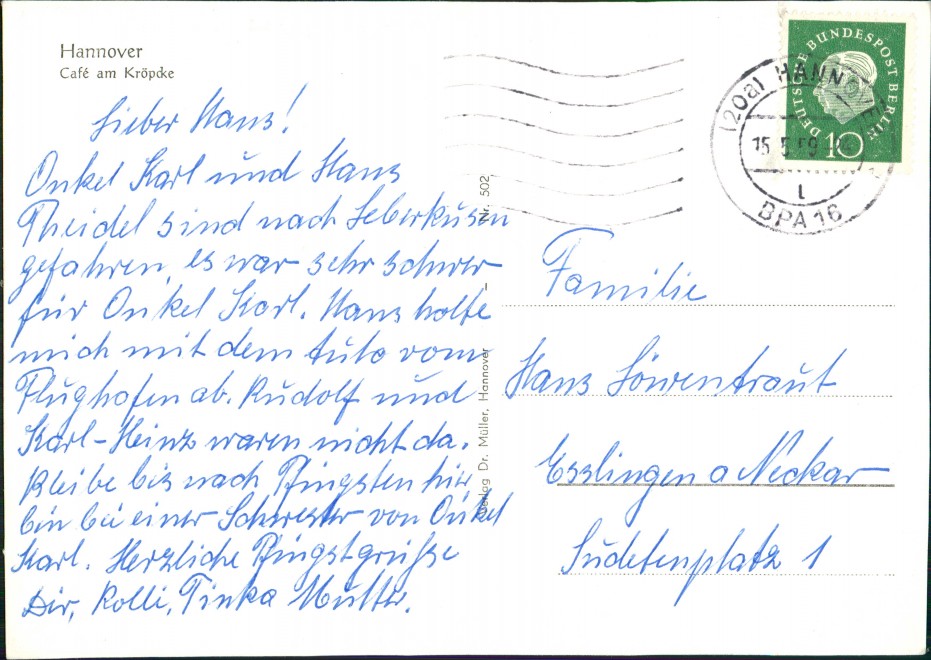 Hannover
Café am Kröpcke
Lieber Hans!
Onkel Karl und Hans
Theidel sind nach Leberkusen
gefahren, es war sehr schwer
für Onkel Karl. Hans holte
mich mit dem Auto vom
Flughafen ab. Rudolf und
Karl-Heinz waren nicht da.
Bleibe bis nach Pfingsten hier
bin bei einer Schwester von Onkel
Karl. Herzliche Pfingstgrüsse
Dir, Rolli, Tinka Mutter.
Verlag Dr. Müller, Hannover – Nr. 502
DEUTSCHE BUNDESPOST BERLIN
10
(20a) HANNOVER
15.5.59
L
BPA 16
Familie
Hans Löwentraut
Esslingen a Neckar
Sudetenplatz 1